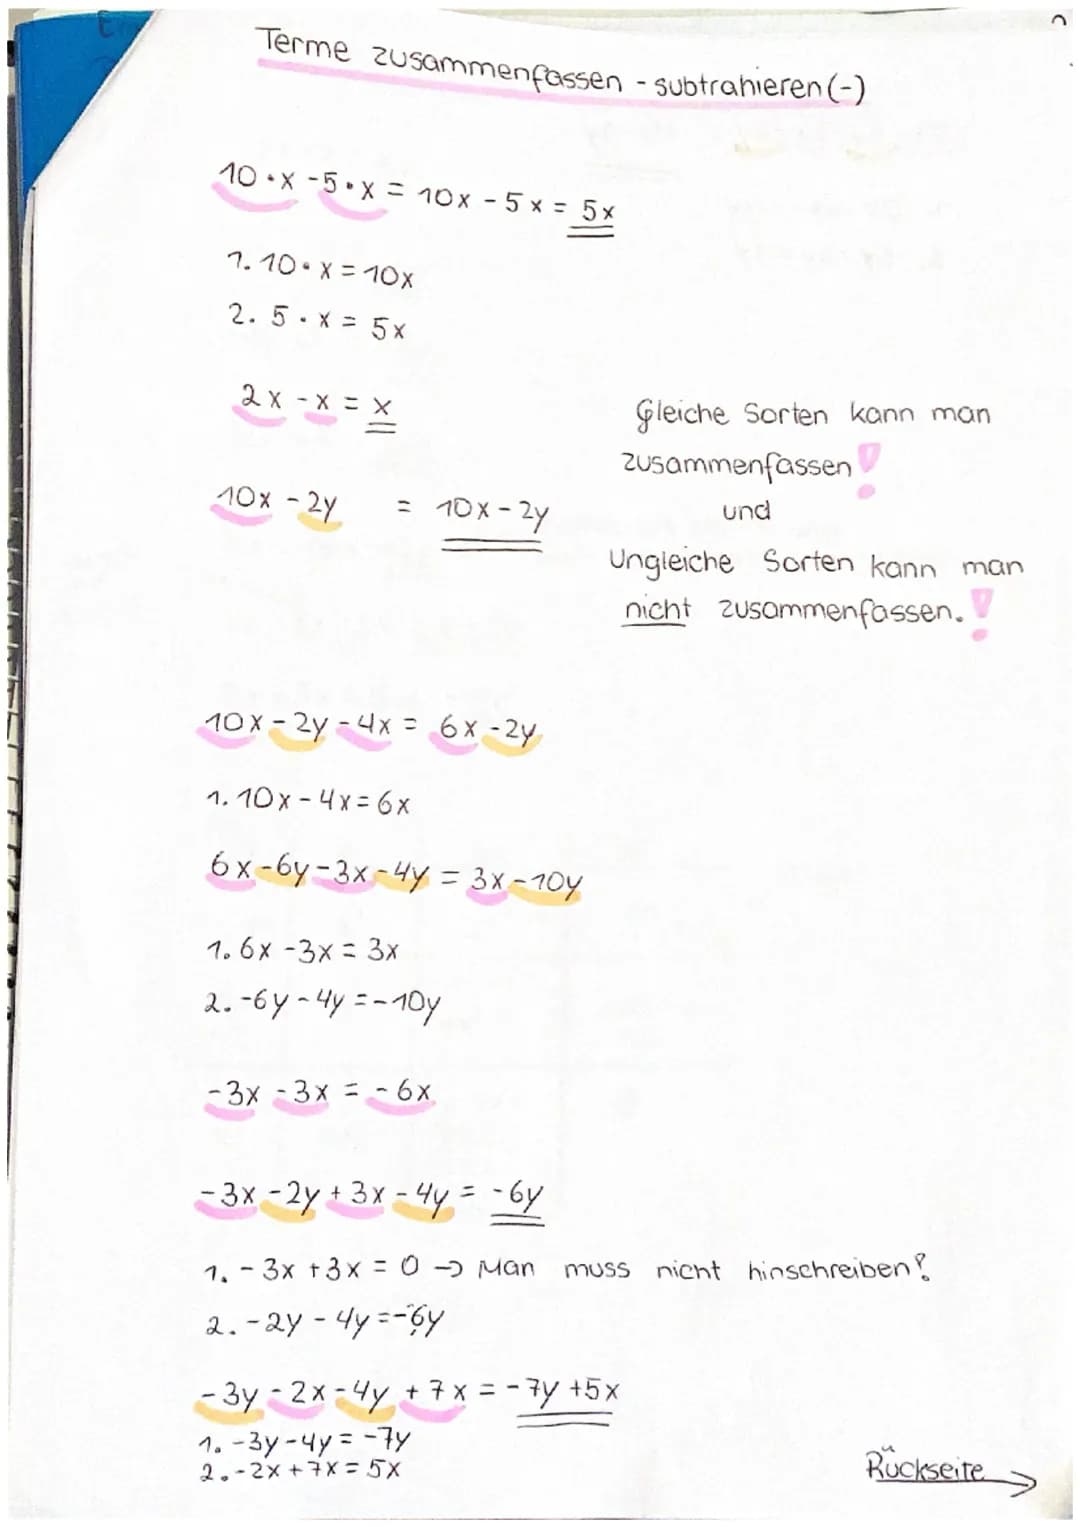 Terme zusammenfassen - subtrahieren (-)
10 · x - 5 · x = 10x - 5x = 5x
1. 10 · x = 10x
2. 5 · x = 5x
2x - x = x
10x - 2y = 10x - 2y
Gleiche Sorten kann man
zusammenfassen!
und
Ungleiche Sorten kann man
nicht zusammenfassen.!
10x - 2y - 4x = 6x - 2y
1. 10x - 4x = 6x
6x - 6y - 3x - 4y = 3x - 10y
1. 6x - 3x = 3x
2. -6y - 4y = -10y
-3x - 3x = -6x
-3x - 2y + 3x - 4y = -6y
1. -3x + 3x = 0 → Man muss nicht hinschreiben!
2. -2y - 4y = -6y
-3y - 2x - 4y + 7x = -7y + 5x
1. -3y - 4y = -7y
2. -2x + 7x = 5x
Rückseite →